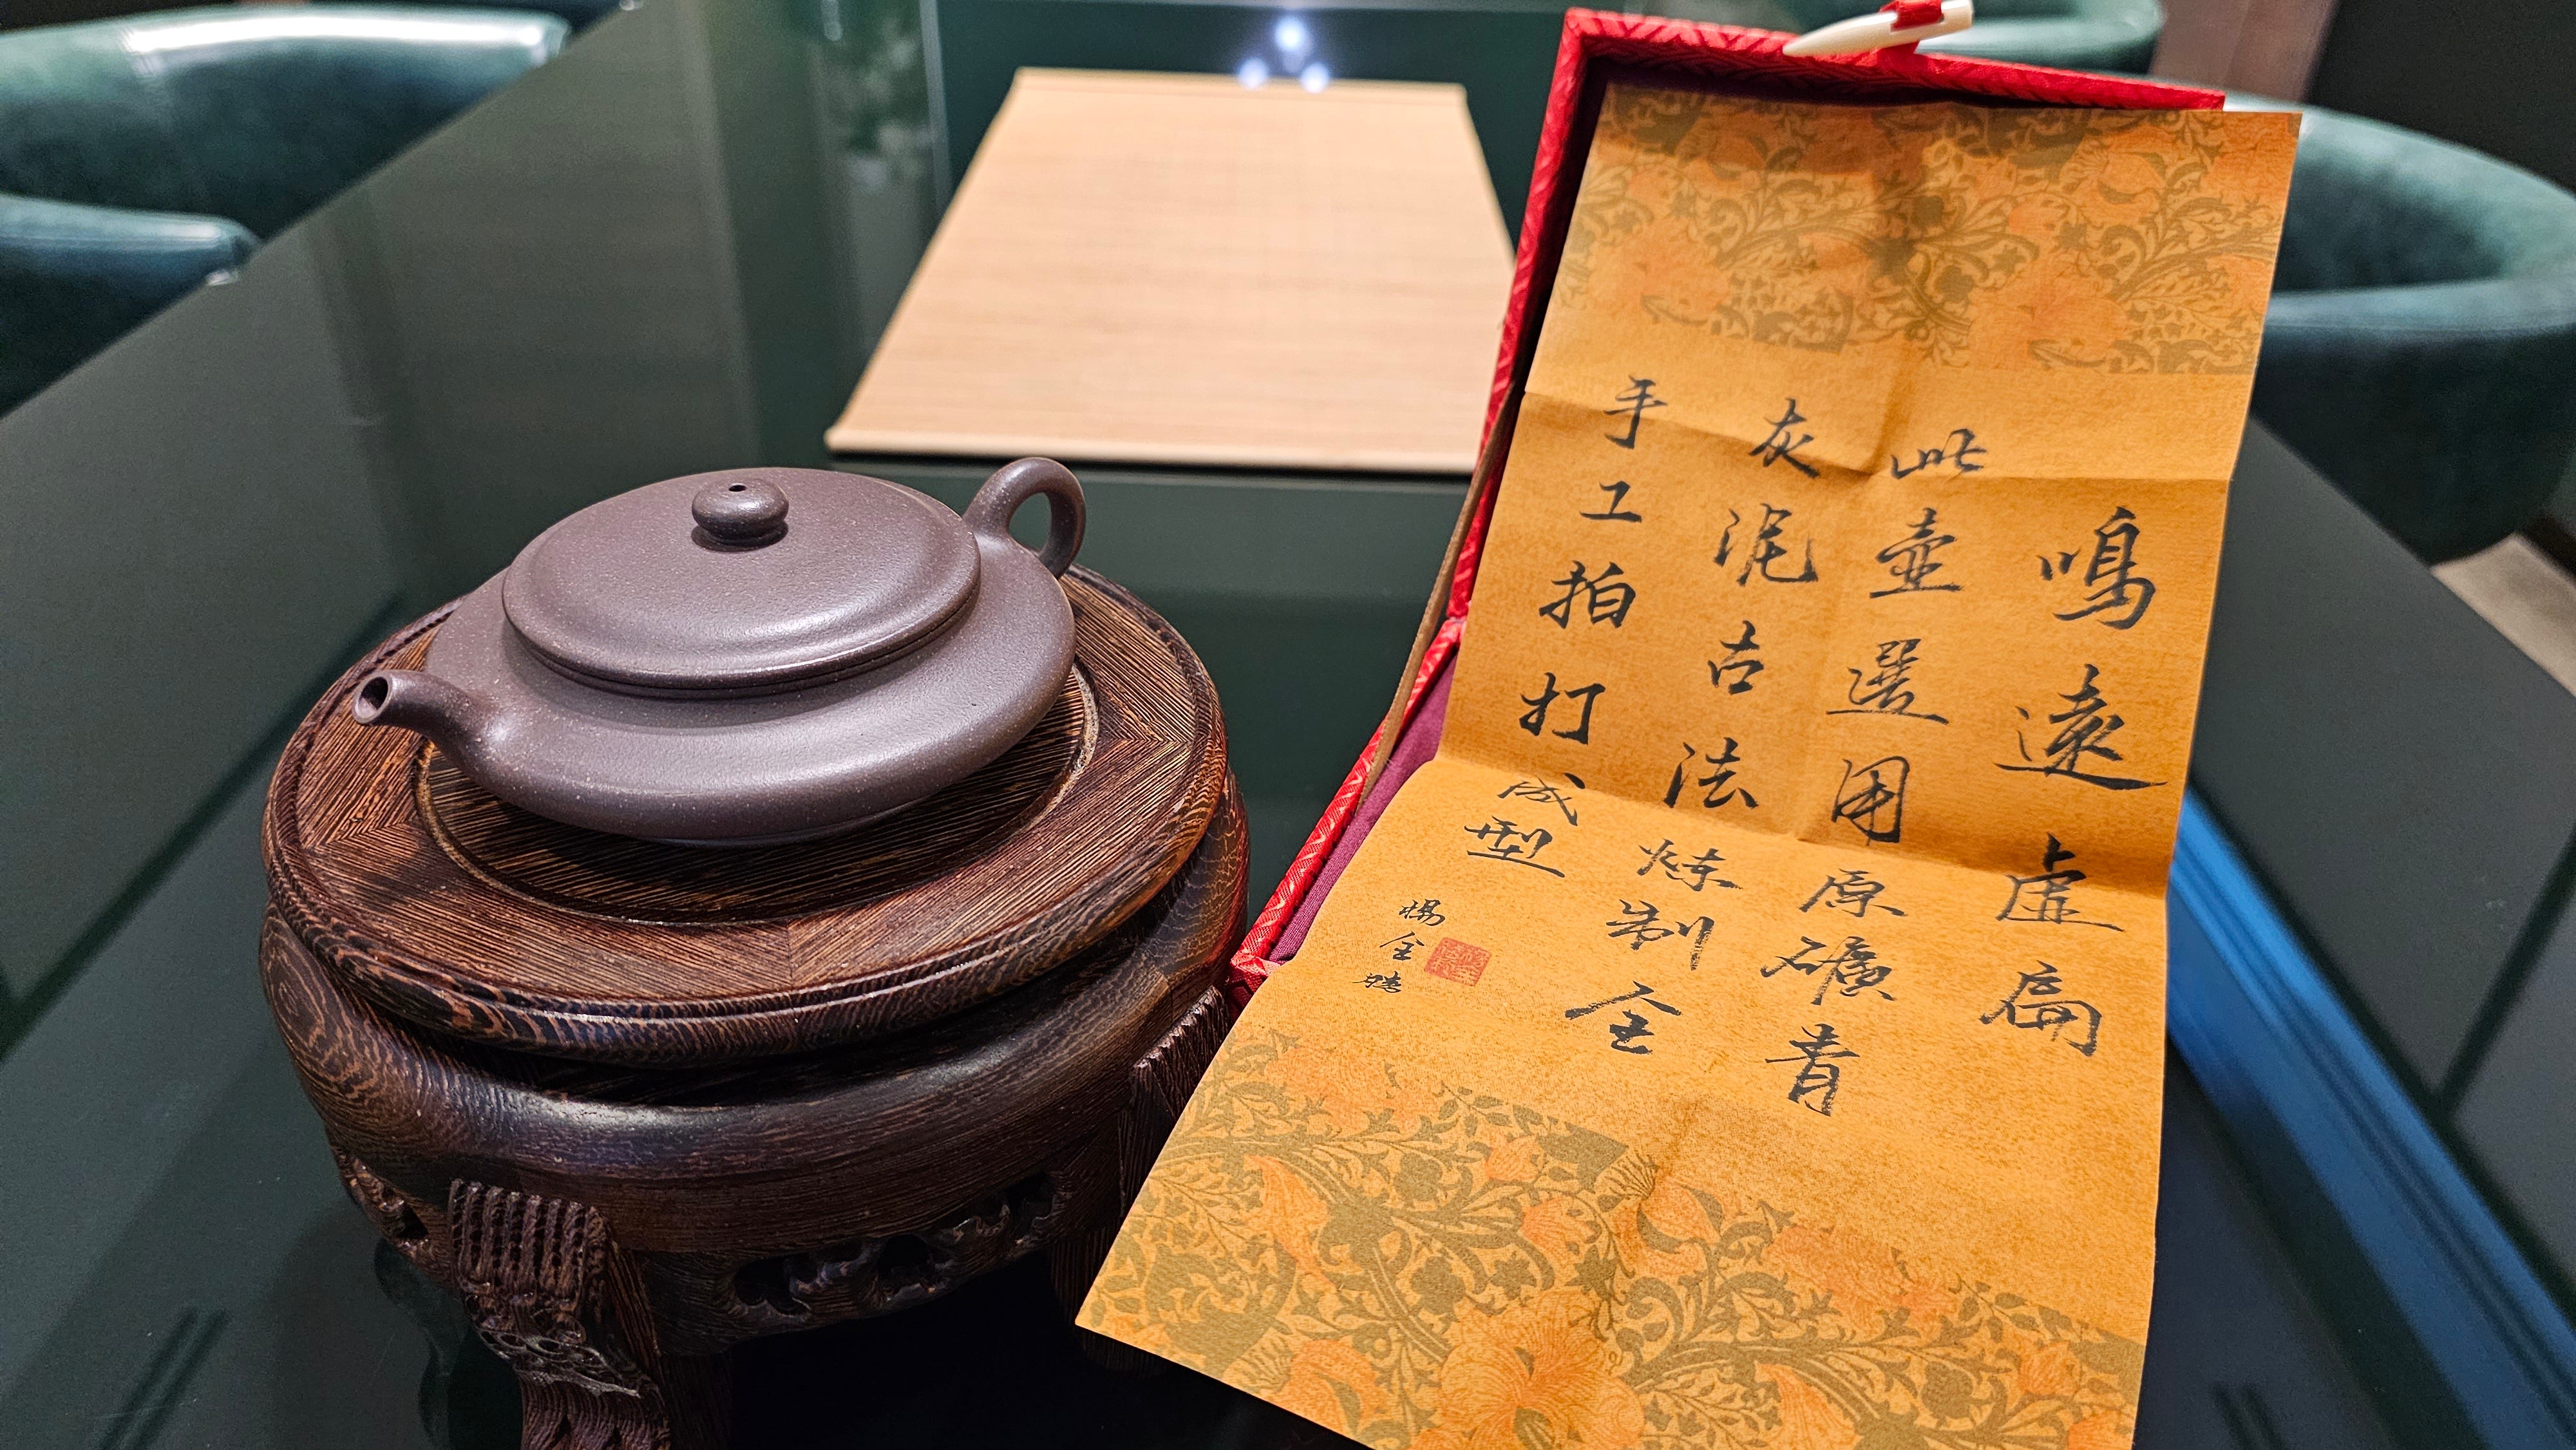 鳴遠虛扁
此壺選用原礦青
灰泥古法炼制全
手工拍打成型